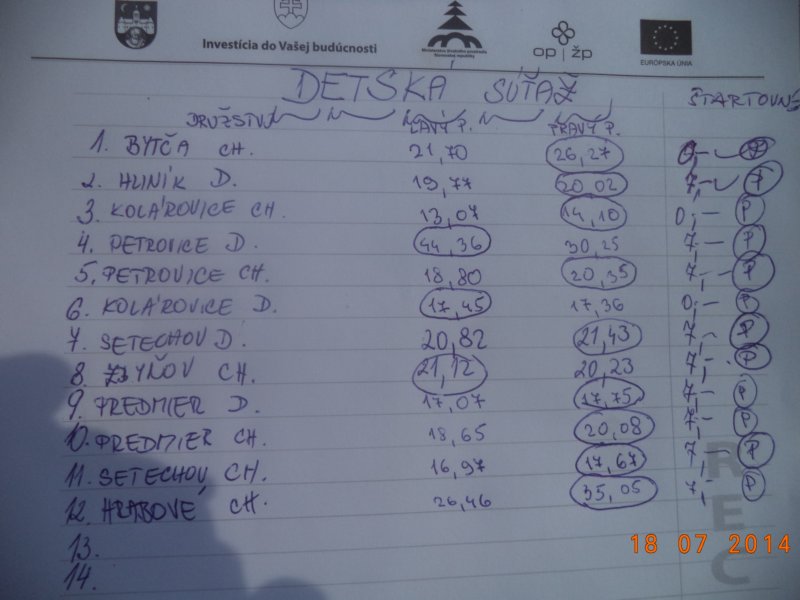 Investícia do Vašej budúcnosti
Ministerstvo životného prostredia
Slovenskej republiky
op žp
EURÓPSKA ÚNIA
DETSKÁ SÚŤAŽ
ŠTARTOVNÉ
DRUŽSTVO ĽAVÝ P. PRAVÝ P.
1. BYTČA CH. 21,70 26,27 0,- P
2. HLINÍK D. 19,77 20,02 7,- P
3. KOLÁROVICE CH. 13,07 14,10 0,- P
4. PETROVICE D. 44,36 30,25 7,- P
5. PETROVICE CH. 18,80 20,35 7,- P
6. KOLÁROVICE D. 17,45 17,36 0,- P
7. SETECHOV D. 20,82 21,43 7,- P
8. ZBYŇOV CH. 21,12 20,23 7,- P
9. PREDMIER D. 17,07 17,75 7,- P
10. PREDMIER CH. 18,65 20,08 7,- P
11. SETECHOV CH. 16,97 17,67 7,- P
12. HRABOVÉ CH. 26,46 35,05 7,- P
13.
14.
REC
18 07 2014